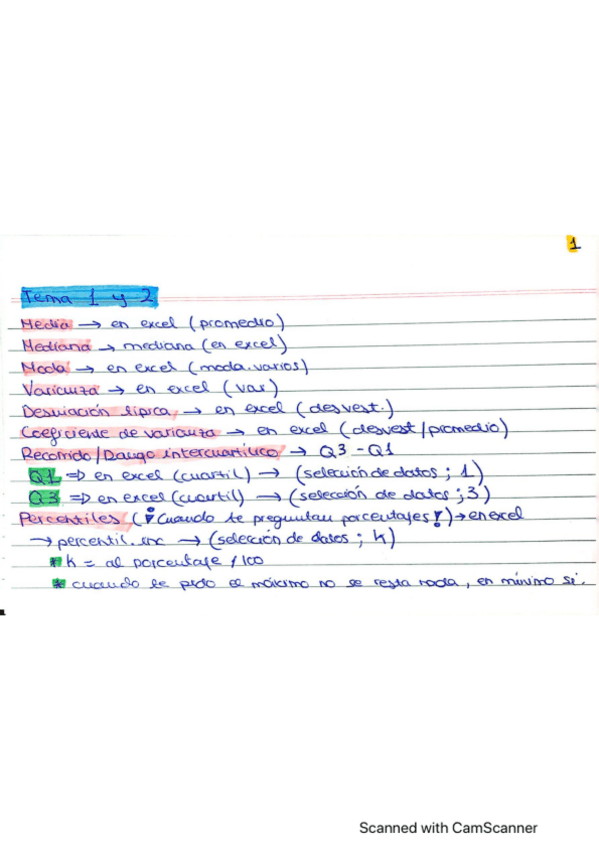 1
Tema 1 y 2
Media → en excel (promedio)
Mediana → mediana (en excel)
Moda → en excel (moda.varios)
Varianza → en excel (var)
Desviación típica → en excel (desvest.)
Coeficiente de varianza → en excel (desvest/promedio)
Recorrido/Rango intercuartílico → Q3 - Q1
Q1 => en excel (cuartil) → (selección de datos ; 1)
Q3 => en excel (cuartil) → (selección de datos ; 3)
Percentiles (¡Cuando te preguntan porcentajes!) → en excel
→ percentil.inc → (selección de datos ; k)
* k = al porcentaje / 100
* cuando te pido el máximo no se resta nada, en mínimo si.
Scanned with CamScanner